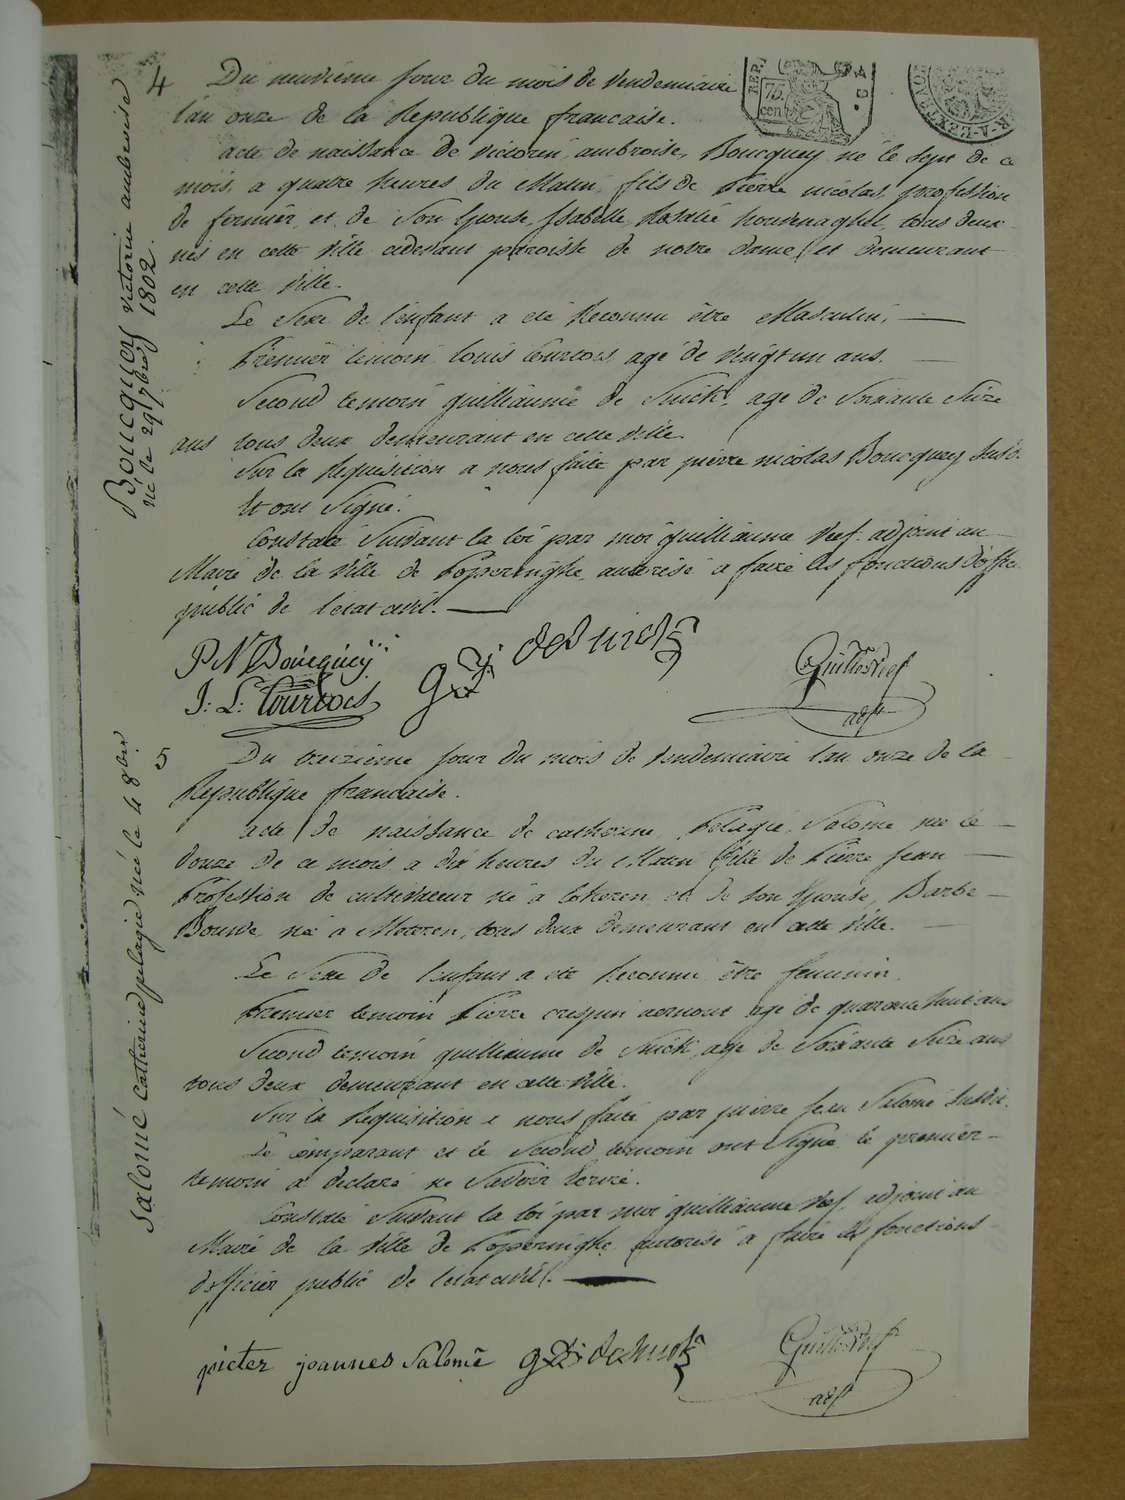 4 Du neuvieme jour du mois de vendemiaire
l'an onze de la Republique francaise.
REP.
75.
cent
acte de naissance de victorin, ambroise, Boucquey né le sept de ce
mois, a quatre heures du Matin, fils de Pierre nicolas, profession
de fermier, et de Son Epouse, Isabelle, Rosalie tous deux
nés en cette ville cidevant paroisse de notre dame, et demeurant
en cette ville.
Le Sexe de l'enfant a été Reconnu être Masculin,
Premier temoin louis Courtois agé de vingt un ans.
Second temoin guilliaume de Snick, agé de Soixante Seize
ans tous deux demeurant en cette ville.
Sur la Requisition a nous faite par pierre nicolas Boucquey Susd.
Et ont Signé.
Constaté Suivant la loi par moi guilliaume Neef. adjoint au
Maire de la ville de Poperinghe, autorisé a faire les fonctions d'offic.
public de l'etat civil.
P N Boucquey
J: L: Courtois
adjt
Boucquey victorin ambroise
né le 29 7bre 1802.
5 Du treizieme jour du mois de vendemiaire l'an onze de la
Republique francaise.
acte de naissance de catherine, Pelagie, Salome, née le
douze de ce mois a dix heures du Matin fille de Pierre Jean
Profession de cultivateur né a et de Son Epouse, Barbe
née a tous deux demeurant en cette ville.
Le Sexe de l'enfant a été Reconnu être feminin.
Premier temoin Pierre crespin aernout agé de quarante huit ans
Second temoin guilliaume de Snick agé de Soixante Seize ans
tous deux demeurant en cette ville.
Sur la Requisition a nous faite par pierre Jean Salomé Susdit.
Le comparant et le Second temoin ont Signé le premier
temoin a declaré ne Savoir Ecrire.
Constaté Suivant la loi par moi guilliaume Neef. adjoint au
Maire de la ville de Poperinghe autorisé a faire les fonctions
d'officier public de l'etat civil.
pieter joannes Salomé
adjt
Salomé Catherine pelagie née le 4 8bre